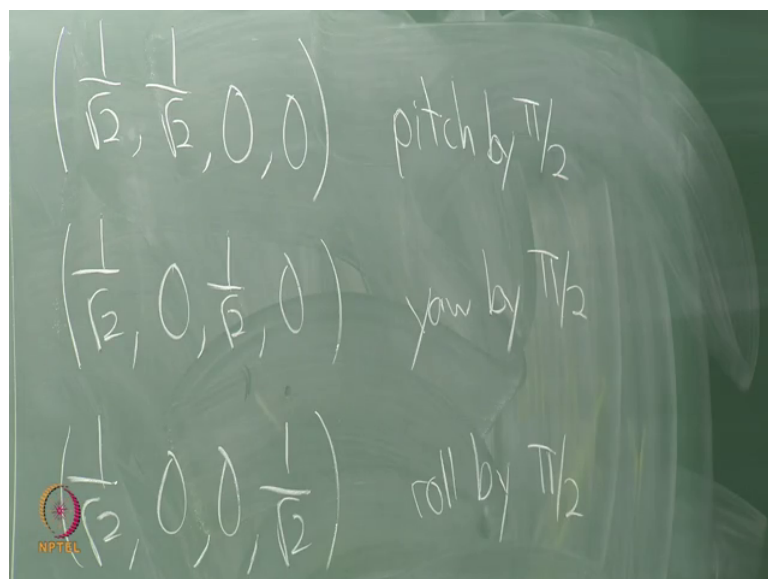 (1/√2, 1/√2, 0, 0) pitch by π/2
(1/√2, 0, 1/√2, 0) yaw by π/2
(1/√2, 0, 0, 1/√2) roll by π/2
NPTEL